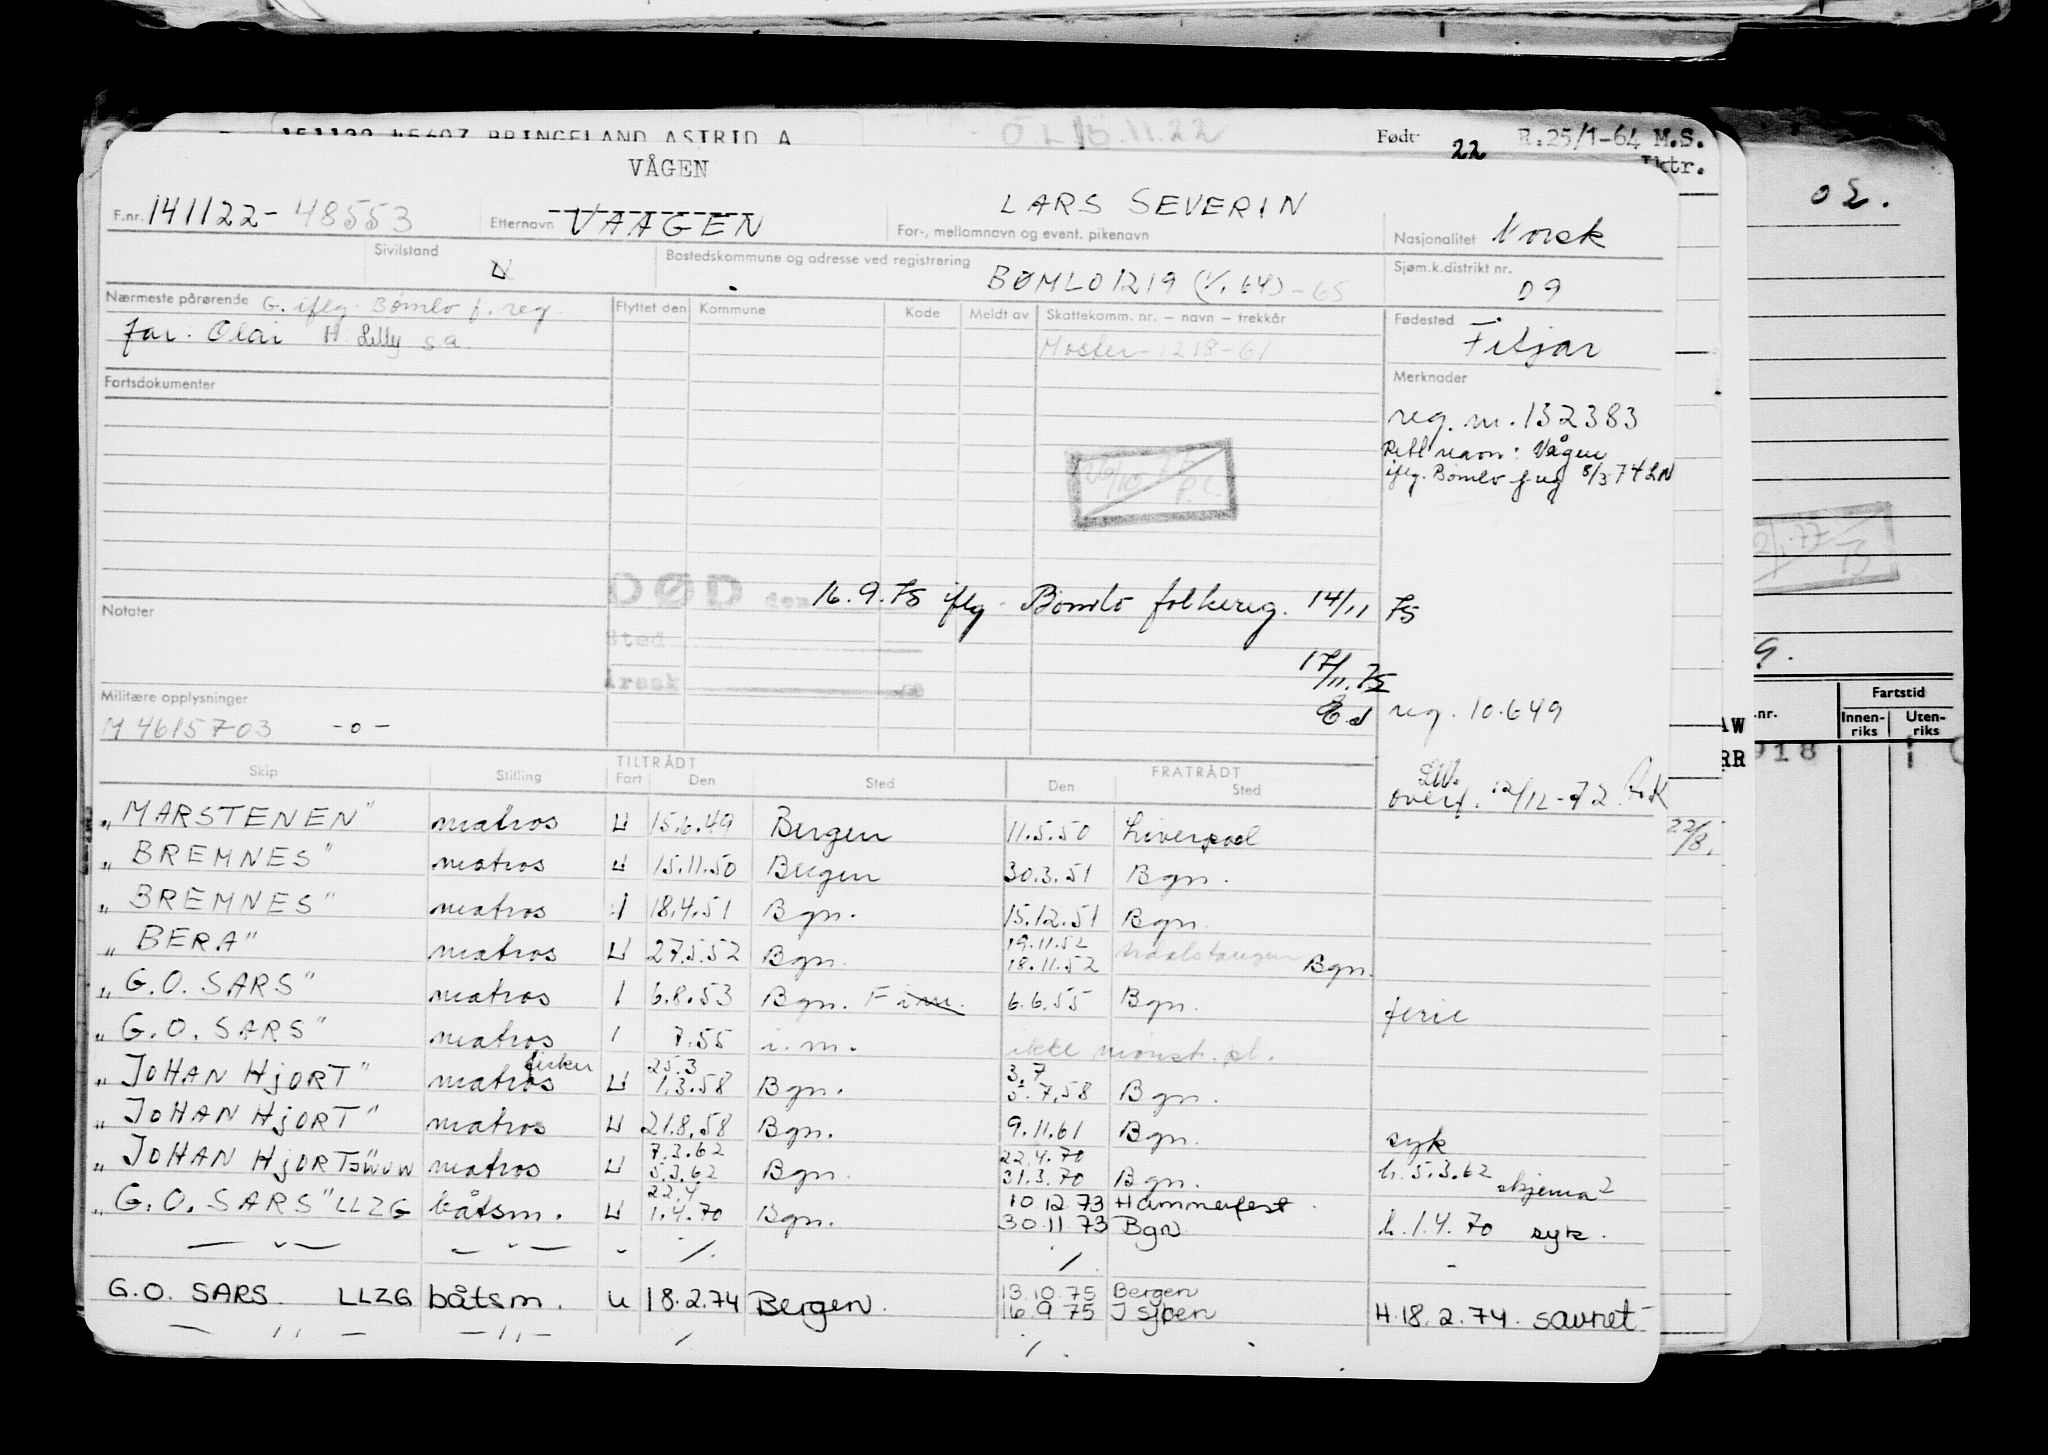 Født 22 R.25/1-64 M.S.
VÅGEN
F.nr. 141122-48553 Etternavn VAAGEN LARS SEVERIN
For-, mellomnavn og event. pikenavn
Nasjonalitet Norsk
Sivilstand
Bostedskommune og adresse ved registrering BØMLO 1219 (1/1 64) -65
Sjøm.k.distrikt nr. 09
Nærmeste pårørende G. iflg. Bømlo f. reg.
far. Olai H. Lilly s.a.
Flyttet den Kommune Kode Meldt av Skattekomm. nr. — navn — trekkår
Moster-1218-61
Fødested Fitjar
Fartsdokumenter
Merknader
reg. nr. 132383
Rett navn: Vågen
iflg. Bømlo f. reg 8/3 74 LN
DØD den 16.9.75 iflg. Bømlo folkereg. 14/11 75
Notater
Sted
17/11.75
Årsak
reg. 10.649
Militære opplysninger
M 4615703 -o-
TILTRÅDT FRATRÅDT
Skip Stilling Fart Den Sted Den Sted
overf. 12/12-72
"MARSTENEN" matros U 15.6.49 Bergen 11.5.50 Liverpool
"BREMNES" matros U 15.11.50 Bergen 30.3.51 Bgn.
"BREMNES" matros I 18.4.51 Bgn. 15.12.51 Bgn.
19.11.52
"BERA" matros U 27.5.52 Bgn. 18.11.52 Bgn.
"G.O. SARS" matros I 6.8.53 Bgn. 6.6.55 Bgn. ferie
"G.O. SARS" matros I 7.55 i.m. ikke mønst. pl.
fisker 25.3 3.7
"JOHAN HJORT" matros U 1.3.58 Bgn. 5.7.58 Bgn.
"JOHAN HJORT" matros U 21.8.58 Bgn. 9.11.61 Bgn. syk
7.3.62 22.4.70
"JOHAN HJORT" matros U 5.3.62 Bgn. 31.3.70 Bgn. h. 5.3.62 skjema 2
22.4 10.12.73 Hammerfest
"G.O. SARS" LLZG båtsm. U 1.4.70 Bgn. 30.11.73 Bgn h. 1.4.70 syk.
13.10.75 Bergen
G.O. SARS. LLZG båtsm. U 18.2.74 Bergen. 16.9.75 I sjøen H.18.2.74. savnet
02.
9.
Fartstid
.nr. Innen-riks Uten-riks